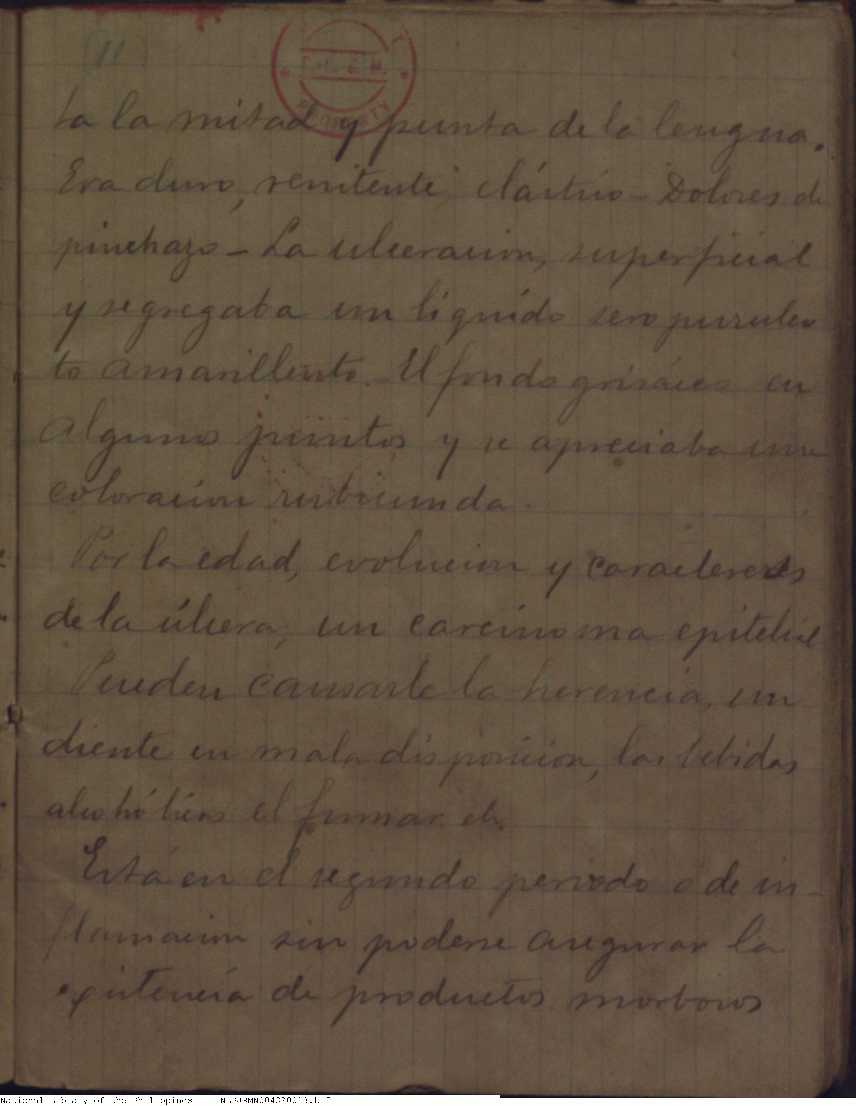 11
PROPERTY
ta la mitad y punta de la lengua.
Era duro, renitente, elástico - Dolores de
pinchazo - La ulceracion, superficial
y segregaba un líquido sero purulen
to amarillento. El fondo grisáceo en
algunos puntos y se apreciaba una
coloracion rubicunda.
Por la edad, evolucion y caracteres
de la úlcera, un carcinoma epitelial
Pueden causarle la herencia, un
diente en mala disposicion, las bebidas
alcohólicas el fumar etc.
Está en el segundo periodo o de in-
flamacion sin poderse asegurar la
existencia de productos morbosos
National Library of the Philippines